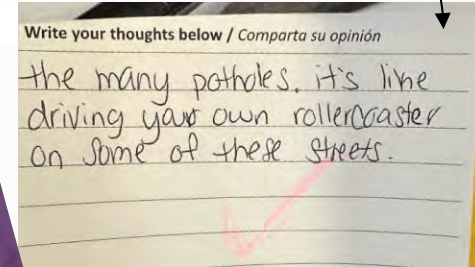 Write your thoughts below / Comparta su opinión
the many potholes. it's like
driving your own rollercoaster
on some of these streets.